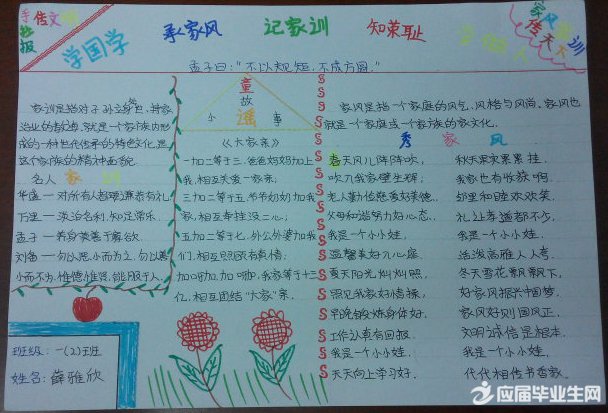 传文
抄报
学国学
承家风
记家训
知荣耻
家风 训
传天下
孟子曰:"不以规矩,不成方圆."
家训是指对子孙立身处世、持家
治业的教诲,就是一个家族内形
成的一种世代传承的特色文化,是
这个家族的精神面貌
名人家
华盛一对所有人都要谦恭有礼
万里一淡泊名利,知足常乐.
孟子一养身莫善于寡欲
刘备一勿以恶小而为之,勿以善
小而不为.惟德惟贤,能服于人.
童
故
小 谣 事
《大家亲》
一加二等于三,爸爸妈妈加上
我,相互关爱一家亲,
三加二等于五,爷爷奶奶加我
家,相互孝挂没二心;
五加二等于七,外公外婆加我
们,相互照顾很有情.
加呀加,加呀加,我家等于十三
亿,相互团结"大家"亲.
家风是指一个家庭的风气,风格与风尚.家风也
就是一个家庭或一个家族的家文化.
秀 家 风
春天风儿阵阵吹,
吹入我家壁生辉;
老人勤俭慈善好美德,
父母和谐努力好心态.
我是一个小小娃,
温馨美好入心扉.
夏天阳光灿灿照,
照见我家好情操,
早晚锻炼身体好,
工作认真有回报.
我是一个小小娃,
天天向上学习好.
秋天果实累累挂,
我家也有收获啊.
邻里和睦欢欢笑,
礼让孝道都不少.
我是一个小小娃,
活泼高雅人人夸.
冬天雪花飘飘下,
好家风振兴中国梦.
家风好则国风正,
文明诚信是根本.
我是一个小小娃,
代代相传书香家.
班级:一(2)班
姓名:薛雅欣
应届毕业生网